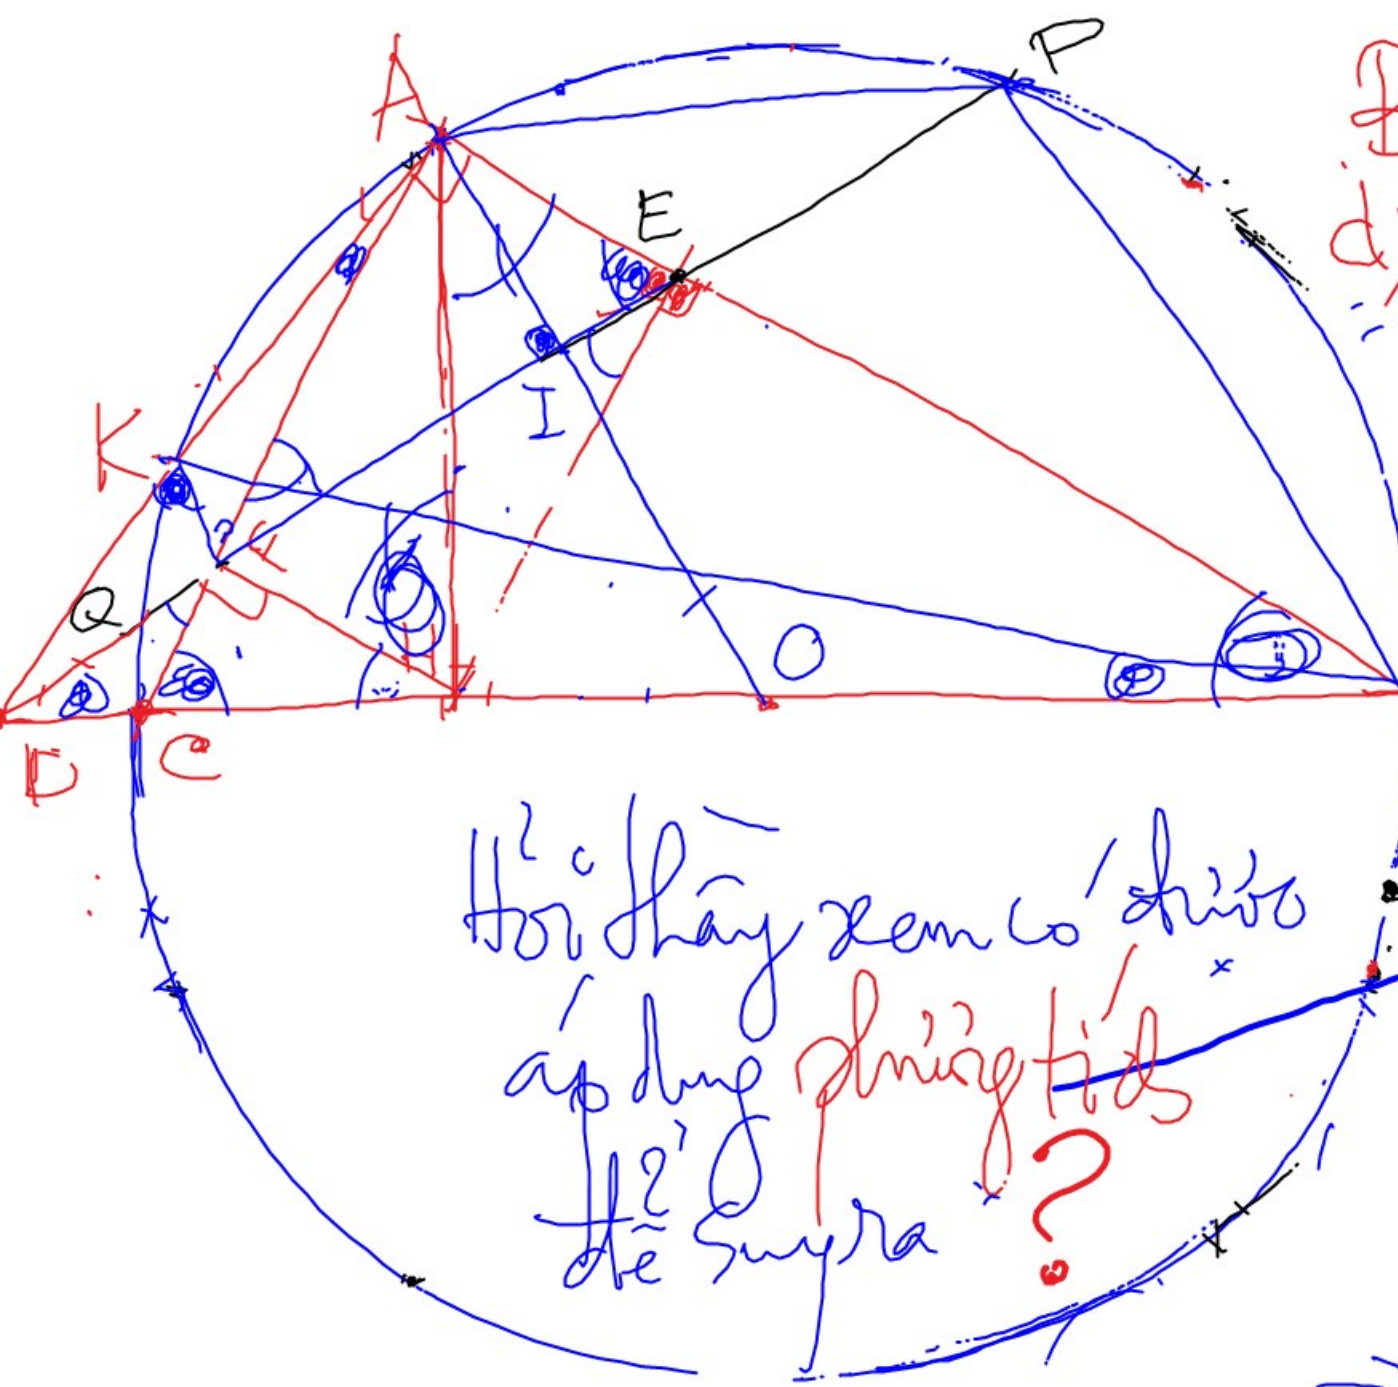 P
A
E
I
K
F
Q
H
O
D
C
Hỏi thầy xem có được
áp dụng phương tích
để suy ra
?